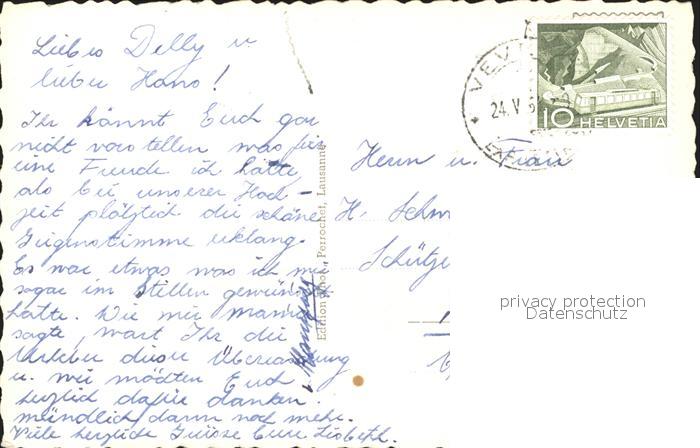 Liebes Delly u
lieber Hans!
Ihr könnt Euch gar
nicht vorstellen was für
eine Freude ich hatte
als bei unserer Hoch-
zeit plötzlich die schöne
Geigenstimme erklang.
Es war etwas was ich mir
sogar im Stillen gewünscht
hatte. Wie mir Mama
sagte, wart Ihr die
Urheber dieser Überraschung
u. wir möchten Euch
herzlich dafür danken.
mündlich dann noch mehr.
Viele herzliche Grüsse Eure Lisbeth.
Edition Perrochet, Lausanne
Herrn u. Frau
H. Schm
Schütze
VEVEY
24. V. 5
10 HELVETIA
privacy protection
Datenschutz